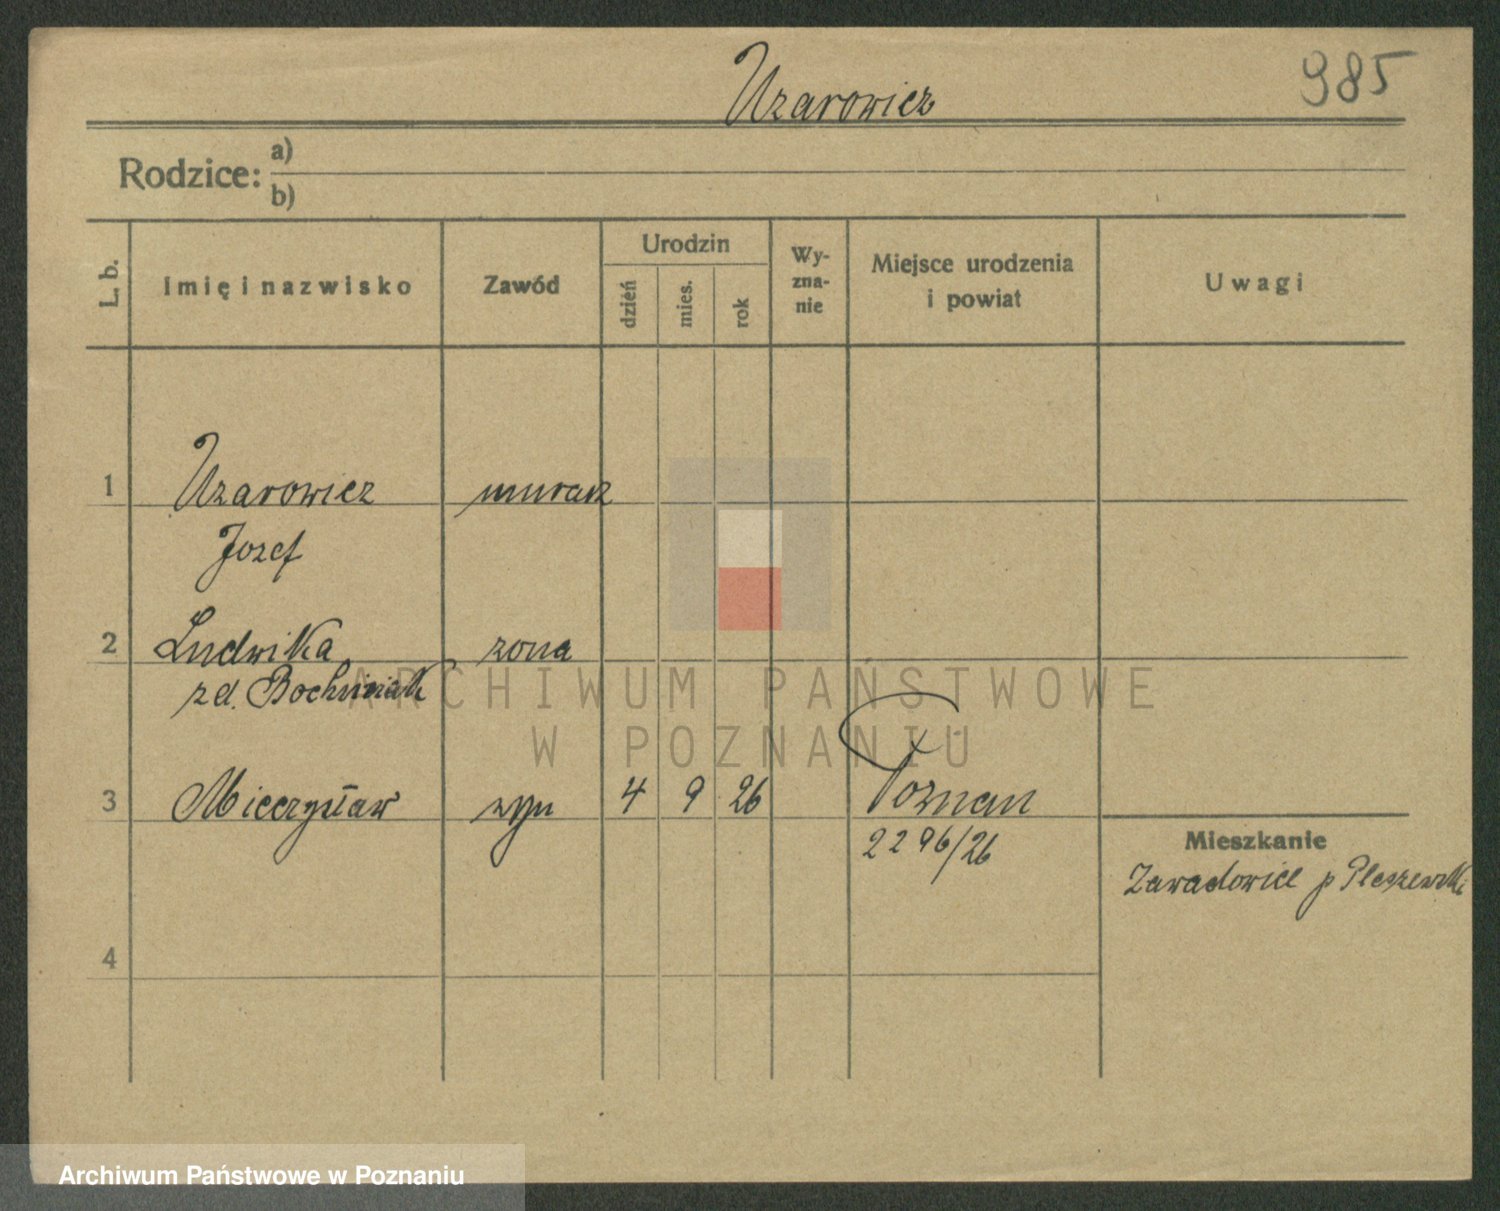 Uzarowicz
985
Rodzice: a)
b)
L. b.
Imię i nazwisko
Zawód
Urodzin
dzień
mies.
rok
Wy-
zna-
nie
Miejsce urodzenia
i powiat
Uwagi
1 Uzarowicz murarz
Jozef
2 Ludwika zona
zd. Bochniak
3 Mieczysław syn 4 9 26 Poznan
2296/26
Mieszkanie
Zawadowice p Pleszewski
4
ARCHIWUM PAŃSTWOWE
W POZNANIU
Archiwum Państwowe w Poznaniu